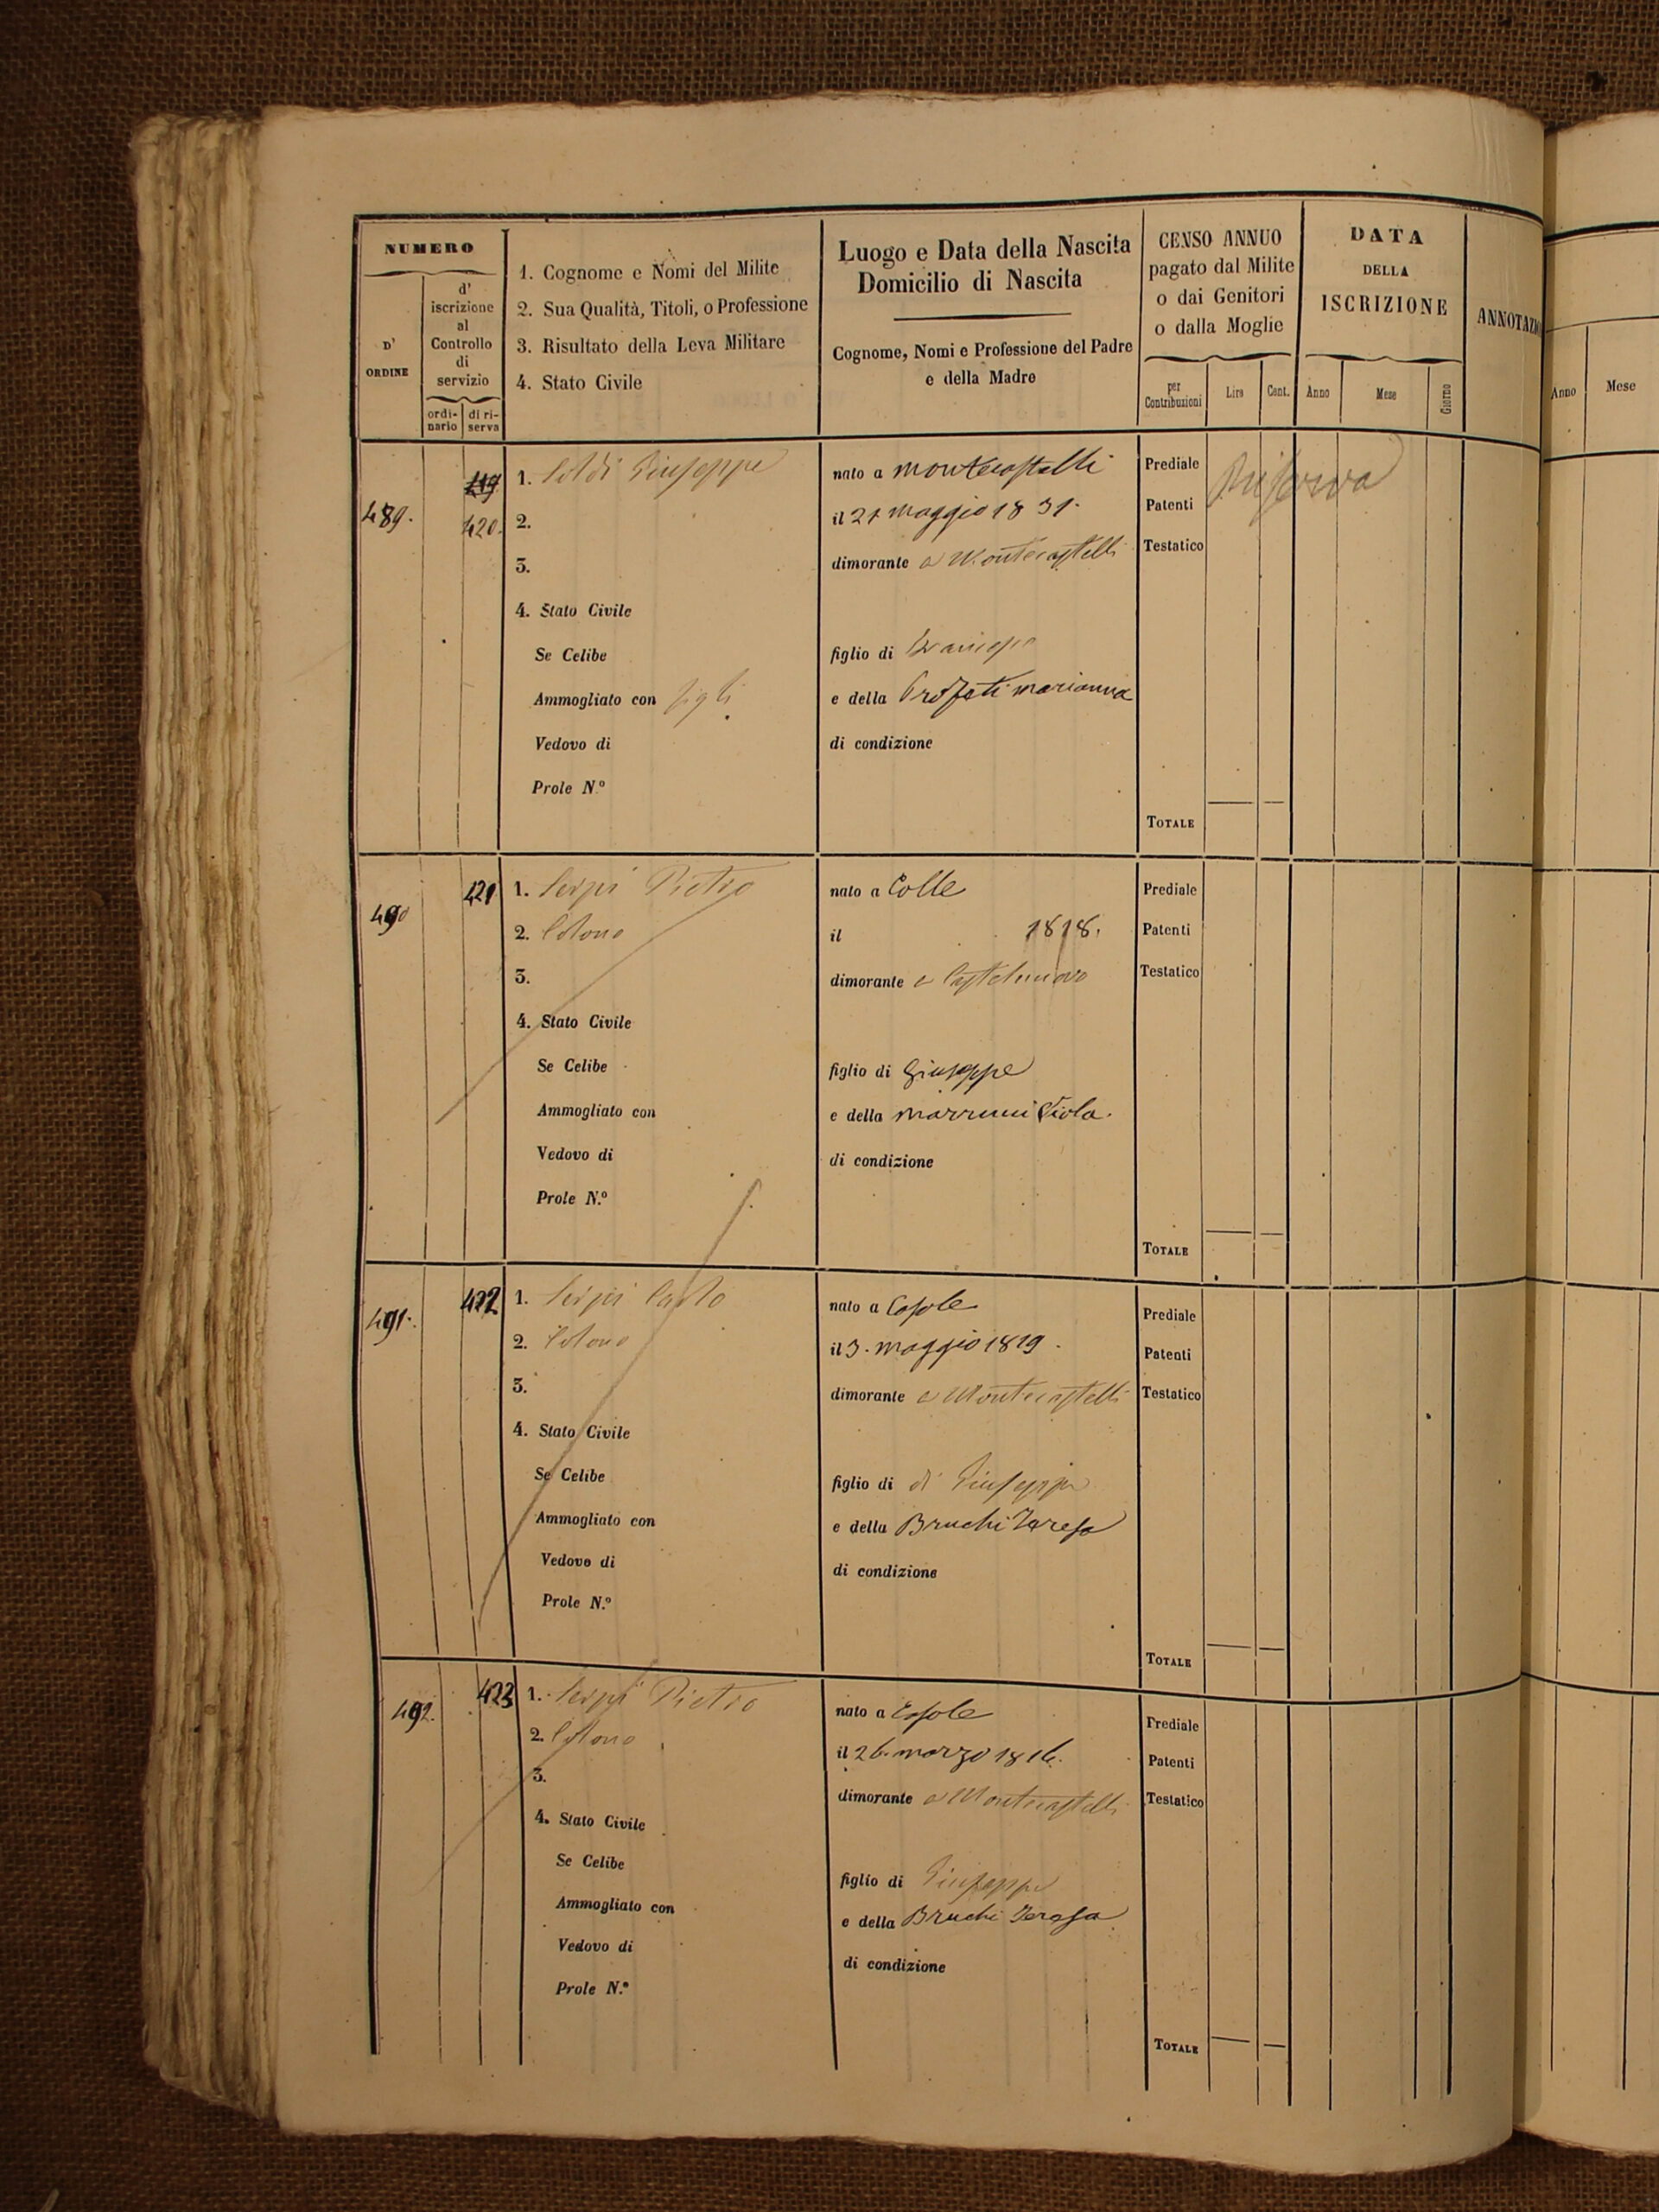 NUMERO
D'
ORDINE
d'
iscrizione
al
Controllo
di
servizio
ordi-
nario
di ri-
serva
1. Cognome e Nomi del Milite
2. Sua Qualità, Titoli, o Professione
3. Risultato della Leva Militare
4. Stato Civile
Luogo e Data della Nascita
Domicilio di Nascita
Cognome, Nomi e Professione del Padre
e della Madre
CENSO ANNUO
pagato dal Milite
o dai Genitori
o dalla Moglie
per
Contribuzioni
Lire
Cent.
DATA
DELLA
ISCRIZIONE
Anno
Mese
Giorno
ANNOTAZIO
Anno
Mese
489.
419
420.
1. Giuseppe
2.
3.
4. Stato Civile
Se Celibe
Ammogliato con figli
Vedovo di
Prole N.º
nato a Montecastelli
il 21 maggio 1831.
dimorante a Montecastelli
figlio di
e della marianna
di condizione
Prediale
Patenti
Testatico
Riserva
TOTALE
490
421
1. Serpi Pietro
2. Colono
3.
4. Stato Civile
Se Celibe
Ammogliato con
Vedovo di
Prole N.º
nato a Colle
il 1818.
dimorante a Castelnuovo
figlio di Giuseppe
e della
di condizione
Prediale
Patenti
Testatico
TOTALE
491.
422
1. Serpi Carlo
2. Colono
3.
4. Stato Civile
Se Celibe
Ammogliato con
Vedovo di
Prole N.º
nato a Casole
il 3. maggio 1819.
dimorante a Montecastelli
figlio di di Giuseppe
e della Bruchi Teresa
di condizione
Prediale
Patenti
Testatico
TOTALE
492.
423
1. Serpi Pietro
2. Colono
3.
4. Stato Civile
Se Celibe
Ammogliato con
Vedovo di
Prole N.º
nato a Casole
il 26. marzo 1816.
dimorante a Montecastelli
figlio di Giuseppe
e della Bruchi Teresa
di condizione
Prediale
Patenti
Testatico
TOTALE